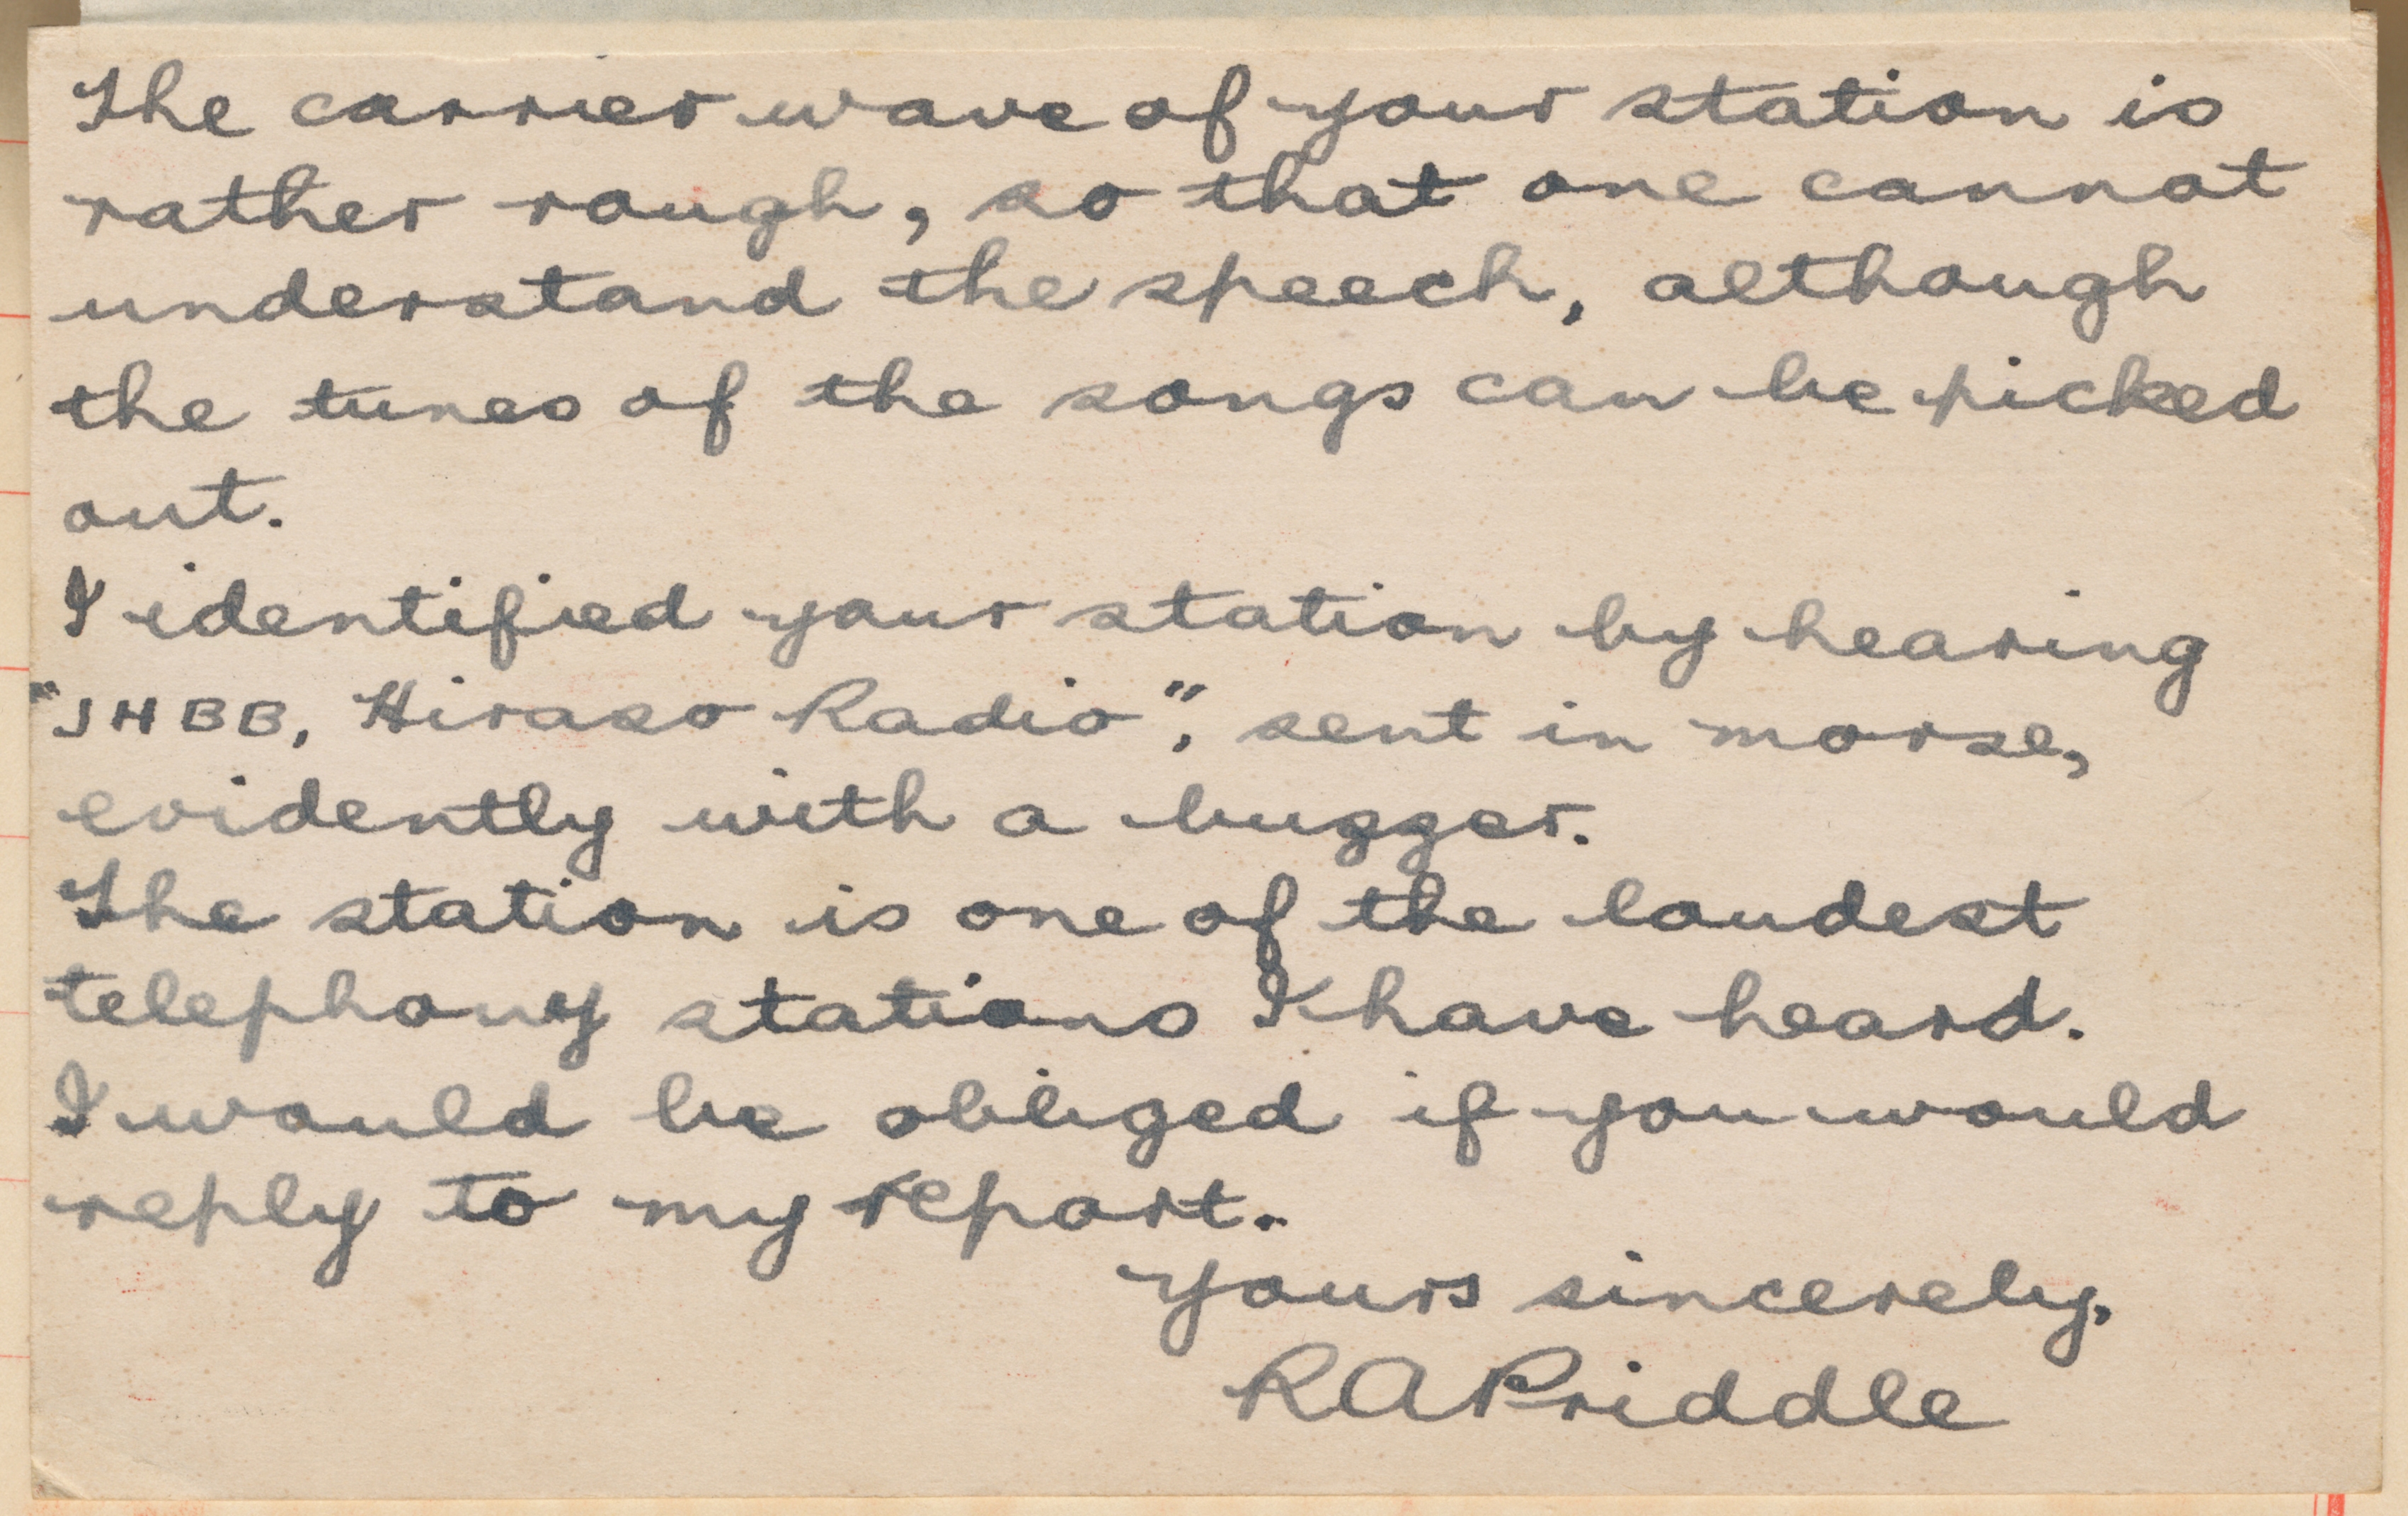 The carrier wave of your station is
rather rough, so that one cannot
understand the speech, although
the tunes of the songs can be picked
out.
I identified your station by hearing
"JHBB, Hiraso Radio", sent in morse,
evidently with a buzzer.
The station is one of the loudest
telephony stations I have heard.
I would be obliged if you would
reply to my report.
Yours sincerely,
RAPriddle